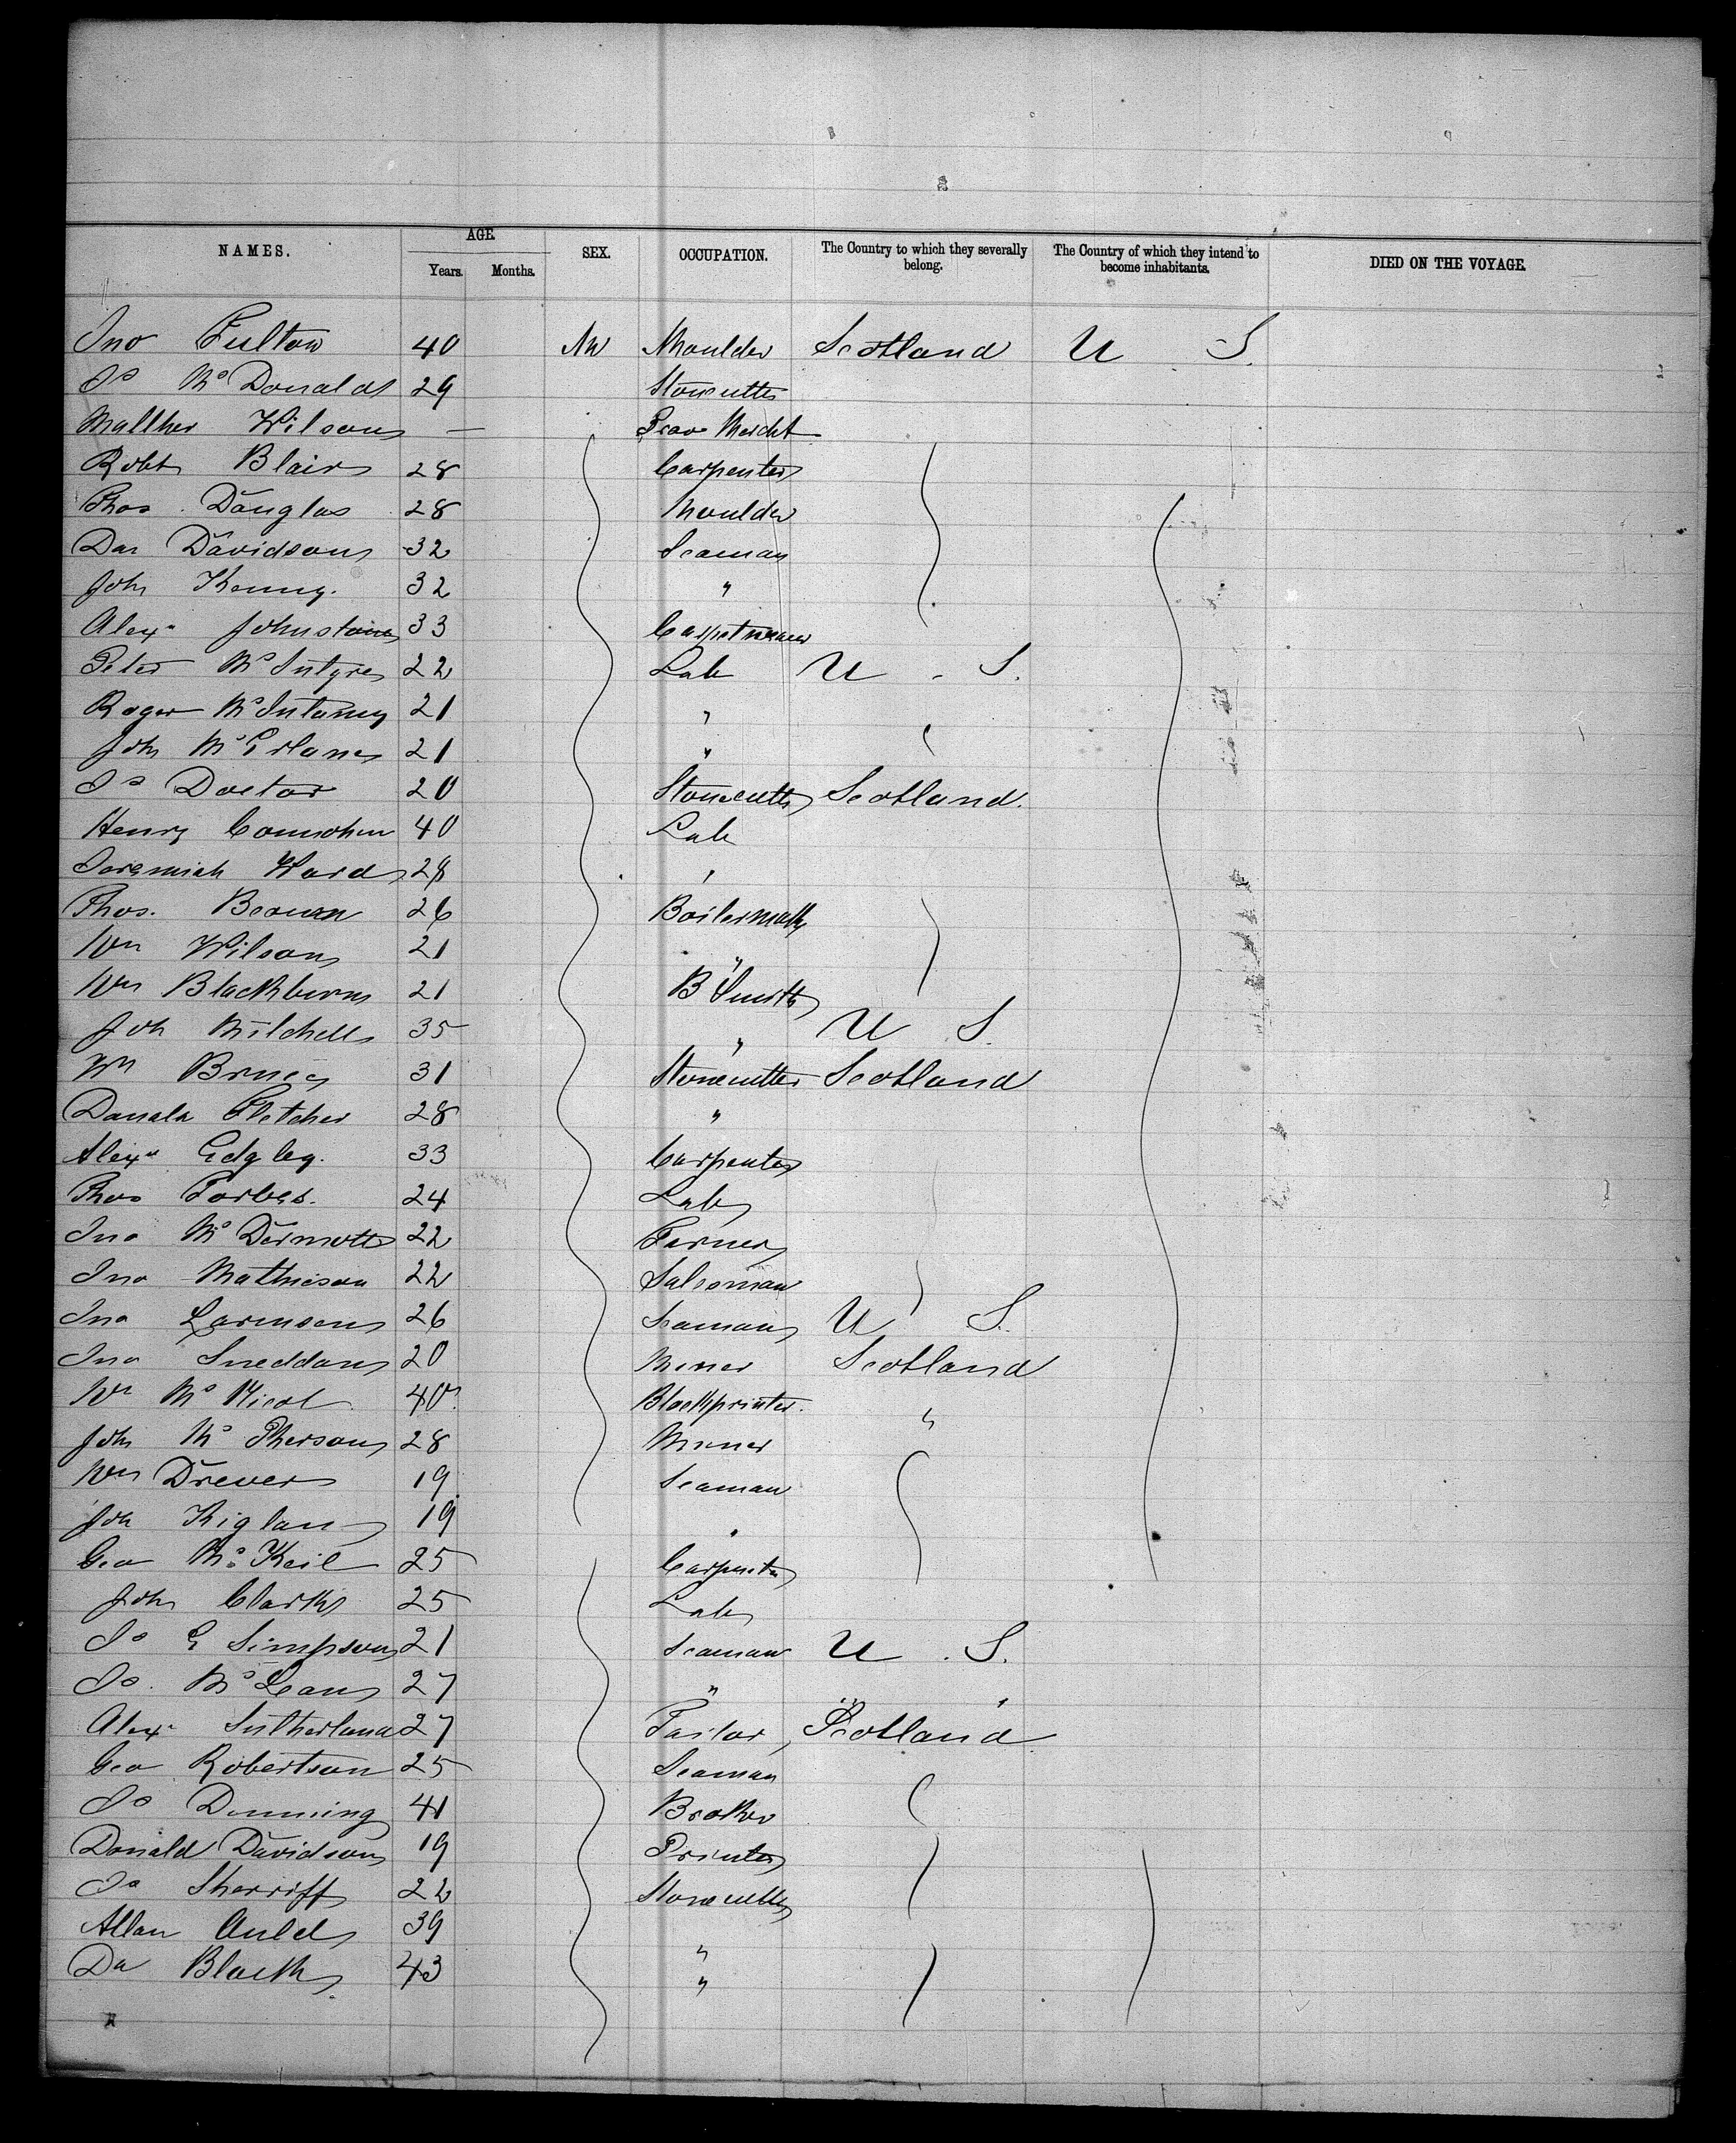 NAMES. AGE. Years. Months. SEX. OCCUPATION. The Country to which they severally belong. The Country of which they intend to become inhabitants. DIED ON THE VOYAGE.
Jno Fulton 40 M Moulder Scotland U S.
Js McDonald 29 Stonecutter
Matther Wilson — Mercht
Robt Blair 28 Carpenter
Thos Douglas 28 Moulder
Da Davidson 32 Seaman
Joh Kenny. 32 "
Alexr Johnston 33
Peter McIntyre 22 Lab U. S.
Roger 21 "
Joh 21 "
Js Doctor 20 Stonecutter Scotland.
Henry 40 Lab
Jeremiah Ward 28 "
Thos. Brown 26 Boilermak
Wm Wilson 21 "
Wm Blackburn 21 B Smith
Joh Mitchell 35 " U S.
Wm Bruce 31 Stonecutter Scotland
Donald Fletcher 28 "
Alexr Edgley. 33 Carpenter
Thos Forbes. 24 Lab
Jno McDermott 22
Jno Mathieson 22 Salesman
Jno Lorenson 26 Seaman U S.
Jno Sneddon 20 Miner Scotland
Wm McNicol 40 Blockprinter. "
Joh McPherson 28 Miner
Wm Drever 19 Seaman
Joh Kiglan 19 "
Geo McKeil 25 Carpenter
Joh Clark 25 Lab
Js G Simpson 21 Seaman U. S.
Js. McLean 27 " " "
Alexr Sutherland 27 Tailor Scotland
Geo Robertson 25 Seaman
Js Dunning 41 Broker
Donald Davidson 19 Printer
Js Sherriff 22 Stonecutter
Allan Auld 39 "
Da Black 43 "